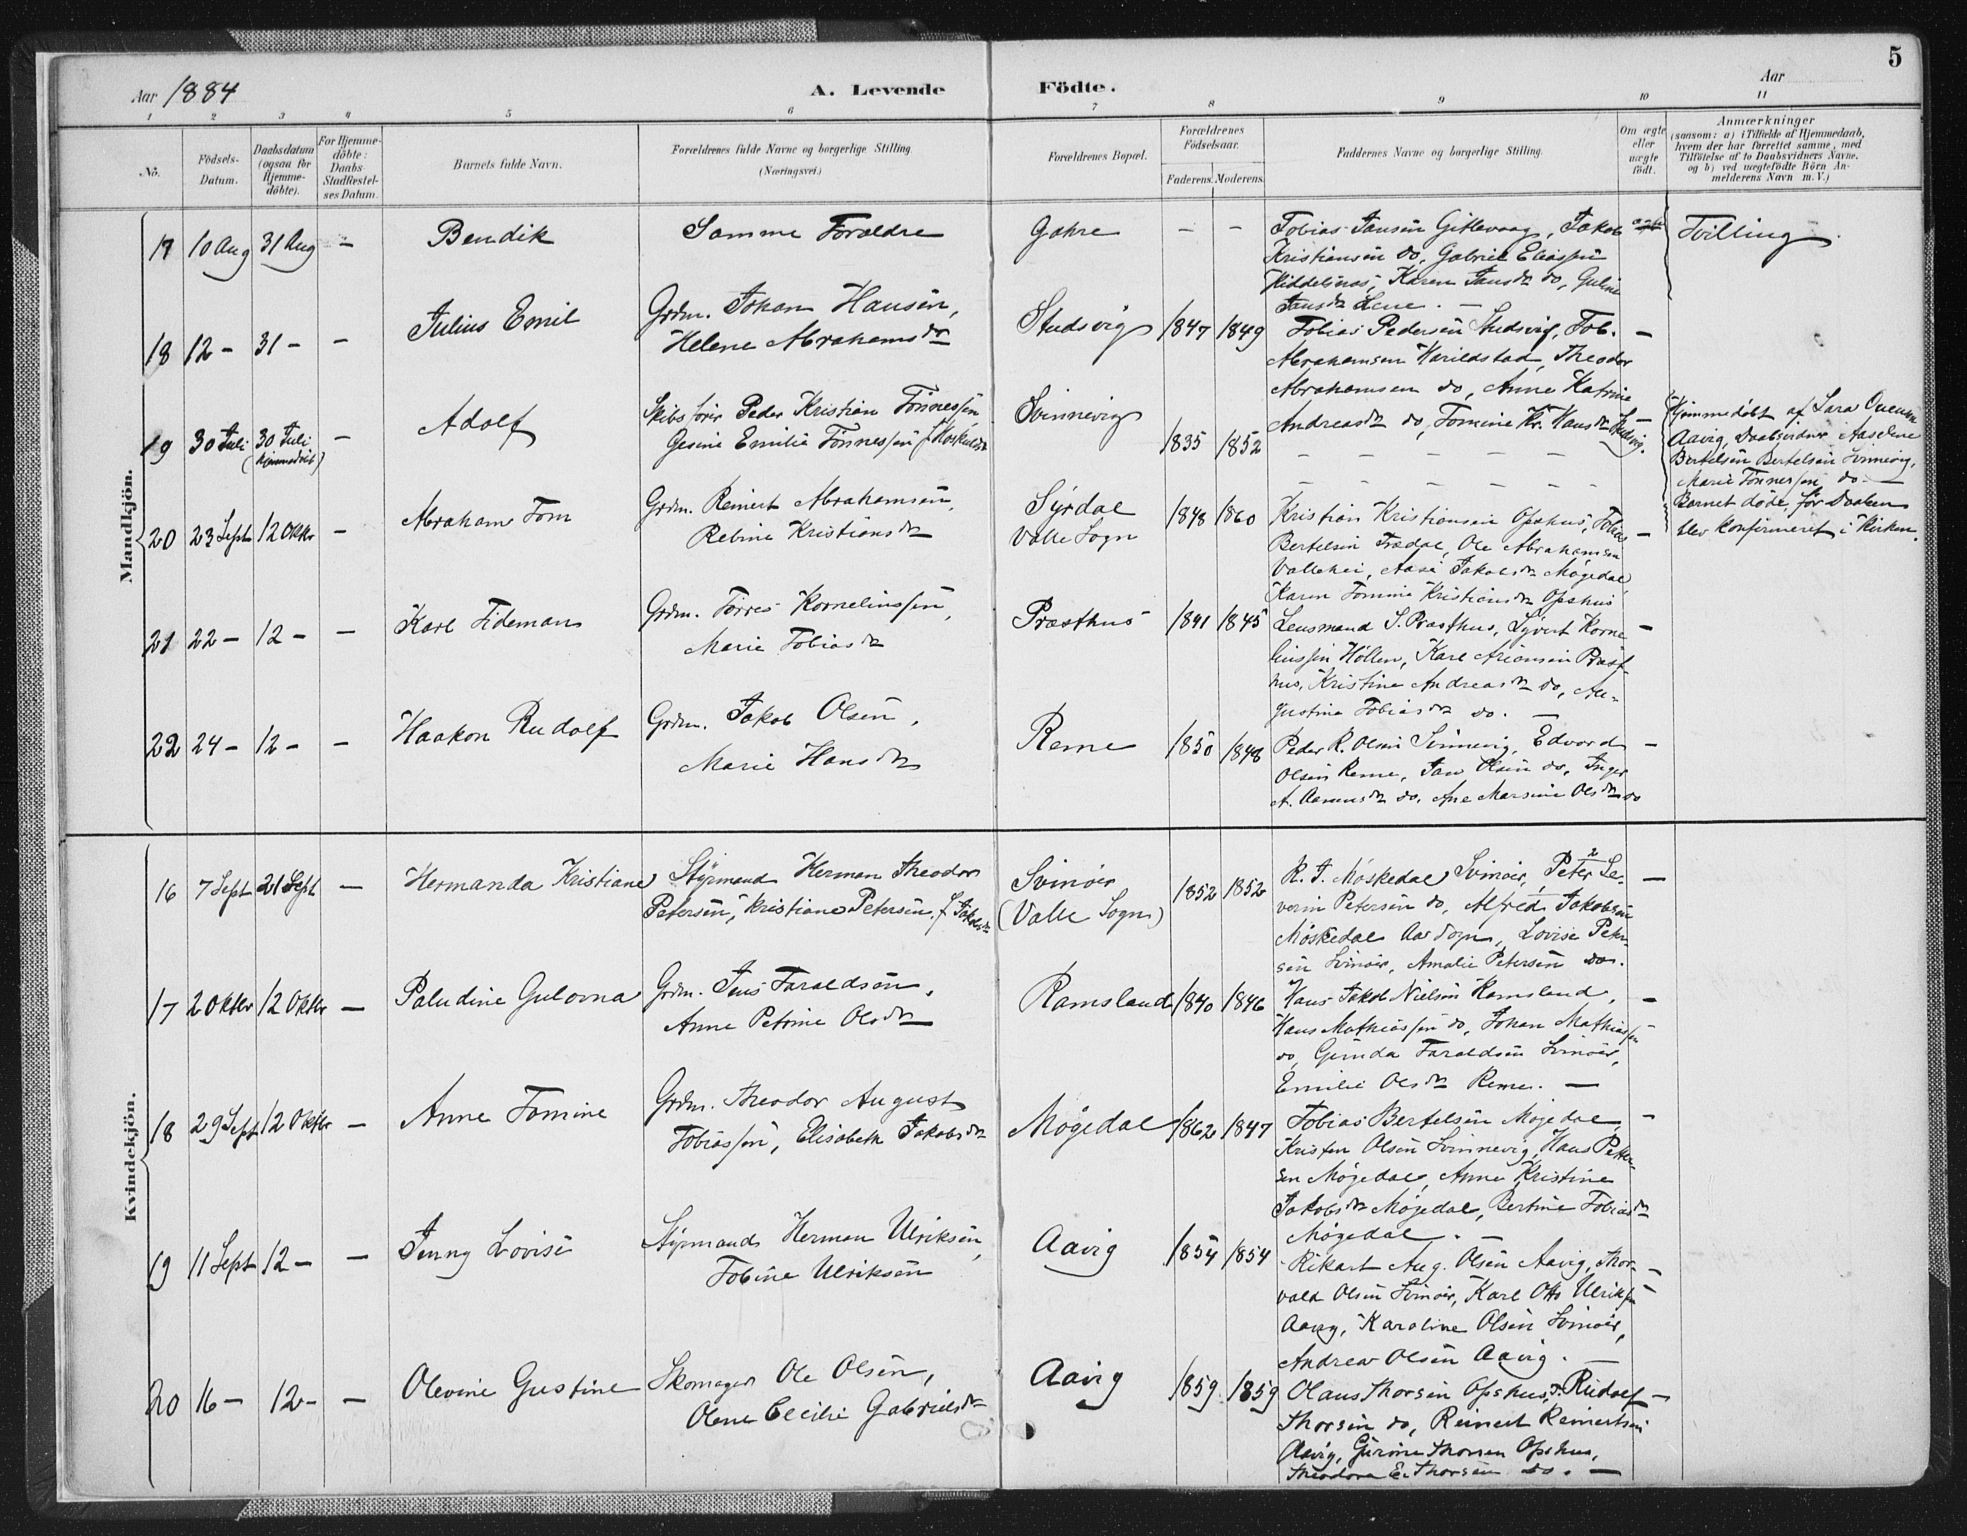 5
Aar 1884
A. Levende Födte.
Aar
1 2 3 4 5 6 7 8 9 10 11
No.
Födsels-Datum.
Daabsdatum (ogsaa for Hjemmedöbte).
For Hjemmedöbte: Daabs Stadfæstelses Datum.
Barnets fulde Navn.
Forældrenes fulde Navne og borgerlige Stilling (Næringsvei.)
Forældrenes Bopæl.
Forældrenes Födselsaar.
Faderens. Moderens.
Faddernes Navne og borgerlige Stilling.
Om ægte eller uægte födt.
Anmærkninger
(saasom: a) i Tilfælde af Hjemmedaab, hvem der har forrettet samme, med Tilföielse af to Daabsvidners Navne, og b) ved uægtefödte Börn Anmelderens Navn m.V.)
Mandkjön.
17 10 Aug 31 Aug – Bendik Samme Forældre Gahre – – ægte Tvilling
Tobias Jansen Gitlevaag, Jakob
Kristiansen do, Gabriel Eliassen
Jansdr do, Guline
Jansdr Lene. –
18 12 – 31 – – Julius Emil Grdm. Johan Hansen,
Helene Abrahamsdr
Studsvig 1847 1849
Tobias Pedersen Studsvig, Tob. –
Abrahamsen Harildstad, Theodor
Abrahamsen do, Anne Katrine
Andreasdr do, Tomine Kr. Hansdr Studsvig.
19 30 Juli 30 Juli (hjemmedøbt) – Adolf Skibsfører Peder Kristian Tønnessen
Gesine Emilie Tønnessen f.
Svinnevig 1835 1852
– – – – – –
Hjemmedøbt af Sara
Aavig, Daabsvidner Aaselene
Bertelsen Bertelsen Svinnevig,
Marie Tønnessen do. –
Barnet døde før Daaben
blev konfirmeret i Kirken.
20 23 Sept 12 Oktr – Abraham Tom Grdm. Reinert Abrahamsen,
Reline Kristiansdr
Syrdal
Valle Sogn
1848 1860
Kristian Kristiansen Opshus, Tobias –
Bertelsen Trædal, Ole Abrahamsen
Vallehei, Aase Jakobsdr Møgedal,
Karen Tomine Kristiansdr Opshus
21 22 – 12 – – Karl Tidemans Grdm. Torres Kornelinssen,
Marie Tobiasdr
Præsthus 1841 1845
Lensmand S. Præsthus, Syvert Korne –
linssen Høllen, Karl Ariansen Præst
hus, Kristine Andreasdr do, Au-
gustine Tobiasdr do. –
22 24 – 12 – – Haakon Rudolf Grdm. Jakob Olsen,
Marie Hansdr
Reme 1850 1848
Peder R. Olsen Svinnevig, Edvard –
Olsen Reme, Jan Olsen do, Inger
A. Aanensdr do, Ane Marsine Olsdr do
Kvindekjön.
16 7 Sept 21 Sept – Hermanda Kristiane Styrmand Herman Theodor
Petersen, Kristiane Petersen, f. Jakobsdr
Svinøer
(Valle Sogn)
1852 1852
R. J. Møskedal Svinøer, Peter Se- –
verin Petersen do, Alfred Jakobsen
Møskedal Aas Sogn, Lovise Peter-
sen Svinøer, Amalie Petersen do.
17 2 Oktbr 12 Oktbr – Paludine Gulovna Grdm. Jens Taraldsen,
Anne Petrine Olsdr
Ramsland 1840 1846
Hans Jakob Nielsen Ramsland, –
Hans Mathiassen do, Johan Mathiassen
do, Gunda Taraldsen Svinøer,
Emilie Olsdr Reme. –
18 29 Sept 12 Oktbr – Anne Tomine Grdm. Theodor August
Tobiassen, Elisabeth Jakobsdr
Møgedal 1862 1847
Tobias Bertelsen Møgedal, –
Kristen Olsen Svinnevig, Hans Petter-
sen Møgedal, Anne Kristine
Jakobsdr Møgedal, Bertine Tobiasdr
Møgedal. –
19 11 Sept 12 – – Jenny Lovise Styrmand Herman Ulriksen,
Tobine Ulriksen
Aavig 1854 1854
Rikart Aug. Olsen Aavig, Thor- –
vald Olsen Svinøer, Karl Otto Ulriksen
Aavig, Karoline Olsen Svinøer,
Andrea Olsen Aavig. –
20 16 – 12 – – Olevine Gustine Skomager Ole Olsen,
Olene Cecilie Gabrielsdr
Aavig 1859 1859
Olaus Thorsen Opshus, Rudolf –
Thorsen do, Reinert Reinertsen
Aavig, Gurine Thorsen Opshus,
Theodora E. Thorsen do. –